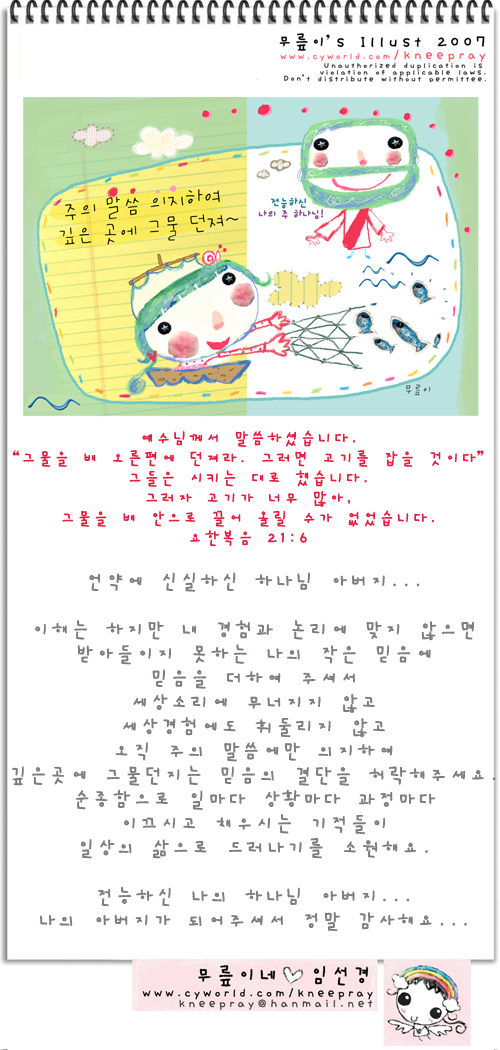 무릎이's Illust 2007
www.cyworld.com/kneepray
Unauthorized duplication is
violation of applicable laws.
Don't distribute without permittee.
주의 말씀 의지하여
깊은 곳에 그물 던져~
전능하신
나의 주 하나님!
무릎이
예수님께서 말씀하셨습니다.
“그물을 배 오른편에 던져라. 그러면 고기를 잡을 것이다”
그들은 시키는 대로 했습니다.
그러자 고기가 너무 많아,
그물을 배 안으로 끌어 올릴 수가 없었습니다.
요한복음 21:6
언약에 신실하신 하나님 아버지...
이해는 하지만 내 경험과 논리에 맞지 않으면
받아들이지 못하는 나의 작은 믿음에
믿음을 더하여 주셔서
세상소리에 무너지지 않고
세상경험에도 휘둘리지 않고
오직 주의 말씀에만 의지하여
깊은곳에 그물던지는 믿음의 결단을 허락해주세요.
순종함으로 일마다 상황마다 과정마다
이끄시고 채우시는 기적들이
일상의 삶으로 드러나기를 소원해요.
전능하신 나의 하나님 아버지...
나의 아버지가 되어주셔서 정말 감사해요...
무릎이네♡임선경
www.cyworld.com/kneepray
kneepray@hanmail.net